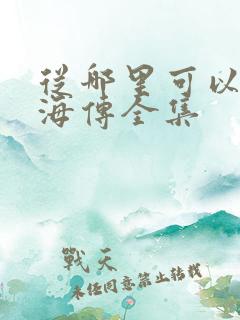 從哪里可以
海傳全集
戰天
未經同意禁止轉載